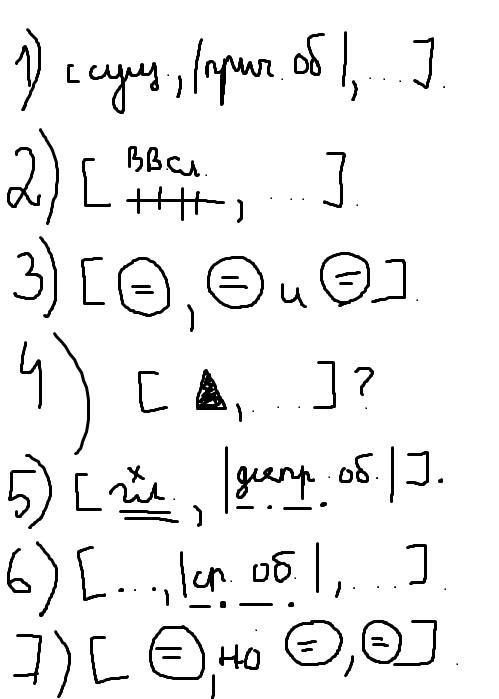 1) [сущ, |прич. об|, ...].
2) [ввсл., ...].
3) [=, = и =].
4) [▲, ...]?
5) [гл., |деепр. об.|].
6) [..., |ср. об.|, ...].
7) [=, но =, =].